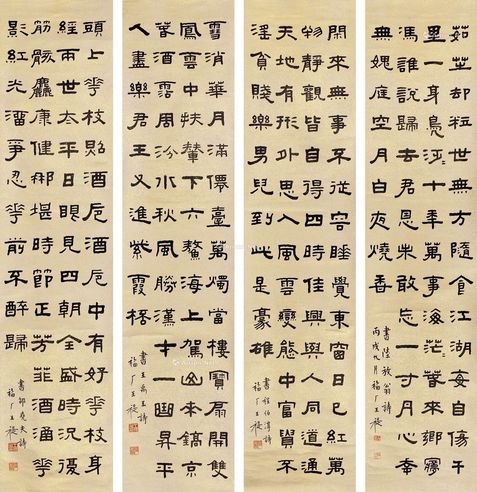 茹芝却粒世無方隨食江湖每自傷千
里一身鳧泛〻十年萬事海茫〻春來鄉夢
馮誰說歸去君恩未敢忘一寸丹心幸
無媿庭空月白夜燒香
書陸放翁詩
丙戌九月福厂王禔
閑來無事不從容睡覺東窗日已紅萬
物靜觀皆自得四時佳興與人同道通
天地有形外思入風雲變態中富貴不
淫貧賤樂男兒到此是豪雄
書程伯淳詩
福厂王禔
雪消華月滿僊臺萬燭當樓寶扇開雙
鳳雲中扶輦下六鰲海上駕山來鎬京
春酒霑周汾水秋風勝漢才一曲昇平
人盡樂君王又進紫霞桮
書王禹玉詩
福厂王禔
頭上華枝照酒卮酒卮中有好華枝身
經兩世太平日眼見四朝全盛時況復
筋骸麤康健那堪時節正芳菲酒涵華
影紅光溜爭忍華前不醉歸
書邵堯夫詩
福厂王禔